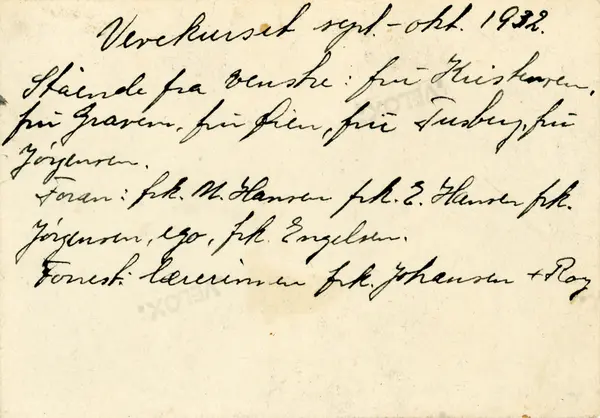 Vevekurset sept.-okt. 1932.
Stående fra venstre: fru Kristensen,
fru Graven, fru Øien, fru Tusberg, fru
Jørgensen.
Foran: frk. M. Hansen frk. E. Hansen frk.
Jørgensen, ego, frk. Engelsen.
Forrest: lærerinnen frk. Johansen + Roy
VELOX
VELOX